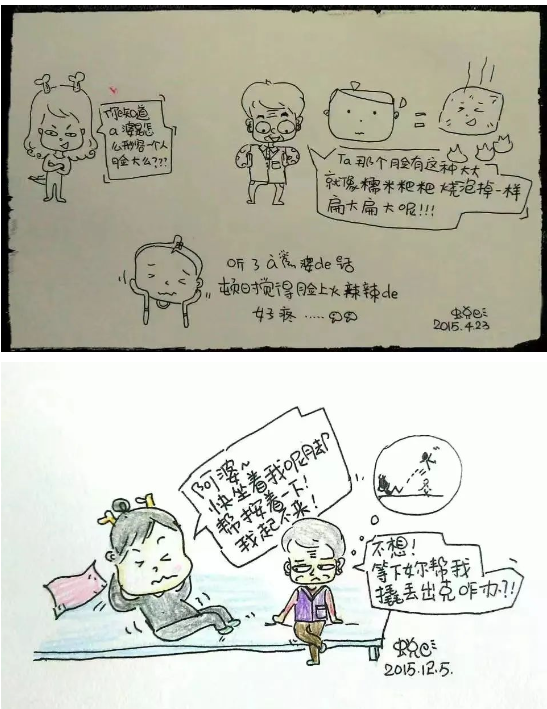 你知道
a婆是怎
么形容一个人
脸大么???
Ta那个脸有这种大大
就像糯米粑粑烧泡掉一样
扁大扁大呢!!!
听了a婆de话
顿时觉得脸上火辣辣de
好疼……
2015.4.23
阿婆~
快坐着我呢脚
帮按着一下!
我起不来!
不想!
等下妳帮我
撬丢出克咋办?!
2015.12.5.